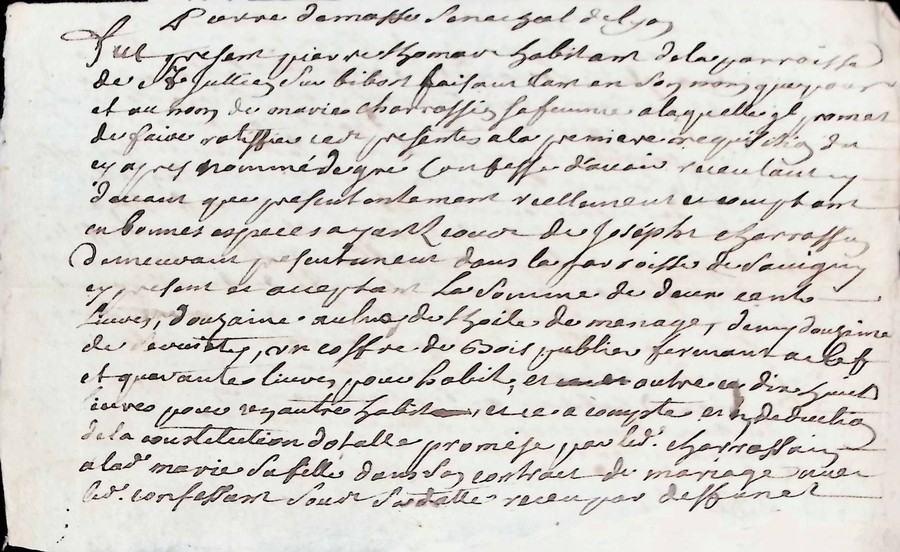 Pierre demasso Senechal de Lyon
Fut present pierre thomas habitant de la parroisse
de St Jullien Sur bibost faisant tant en Son nom que pour
et au nom de marie charrassin sa femme a laquelle Jl promet
de faire ratiffier ces presentes a la premiere requisition du
cy apres nommé de gré Confesse d'avoir receu tant cy
devant que presentement reellement et comptant
en bonnes especes ayant cours de Joseph charrassin
Demeurant presentement dans la parroisse de Savigny
cy present et acceptant La Somme de deux cents
Livres, douzaine aulnes de thoile de menage, demy douzaine
de serviettes, un coffre de Bois fermant a cleff
et quarantes livres pour habit, et outre ce dix huict
livres pour un autre habit, et ce a compte et en deduction
de la constitution dotalle promise par led. charrassin
a lad. marie Sa fille dans Son contract de mariage avec
led. confessant Sous Sa datte receu par deffunct